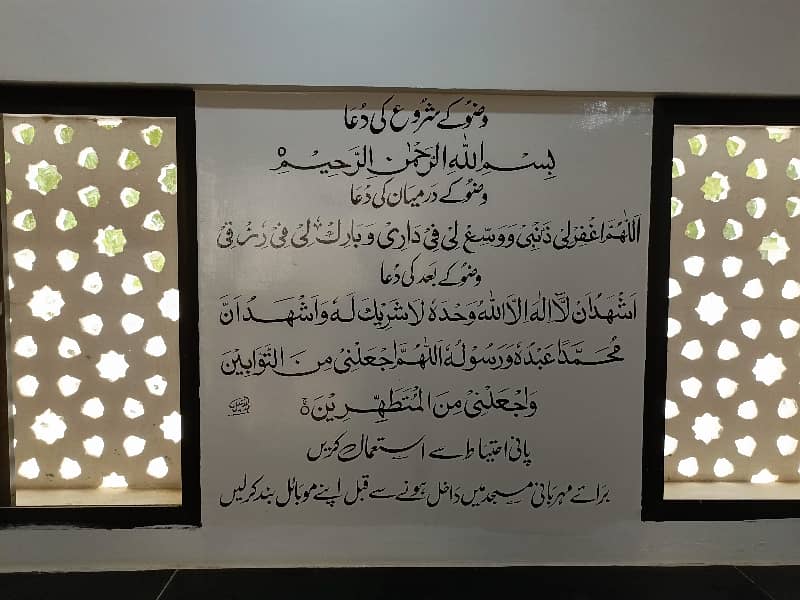 وضو کے شروع کی دُعا
بِسْمِ اللهِ الرَّحْمٰنِ الرَّحِيْمِ
وضو کے درمیان کی دُعا
اَللّٰهُمَّ اغْفِرْلِىْ ذَنْۢبِىْ وَوَسِّعْ لِىْ فِىْ دَارِىْ وَبَارِكْ لِىْ فِىْ رِزْقِىْ
وضو کے بعد کی دُعا
اَشْهَدُ اَنْ لَّآ اِلٰهَ اِلَّا اللهُ وَحْدَهٗ لَاشَرِيْكَ لَهٗ وَاَشْهَدُ اَنَّ
مُحَمَّدًا عَبْدُهٗ وَرَسُوْلُهٗ اَللّٰهُمَّ اجْعَلْنِىْ مِنَ التَّوَّابِيْنَ
وَاجْعَلْنِىْ مِنَ الْمُتَطَهِّرِيْنَ
پانی احتیاط سے استعمال کریں
برائے مہربانی مسجد میں داخل ہونے سے قبل اپنے موبائل بند کرلیں